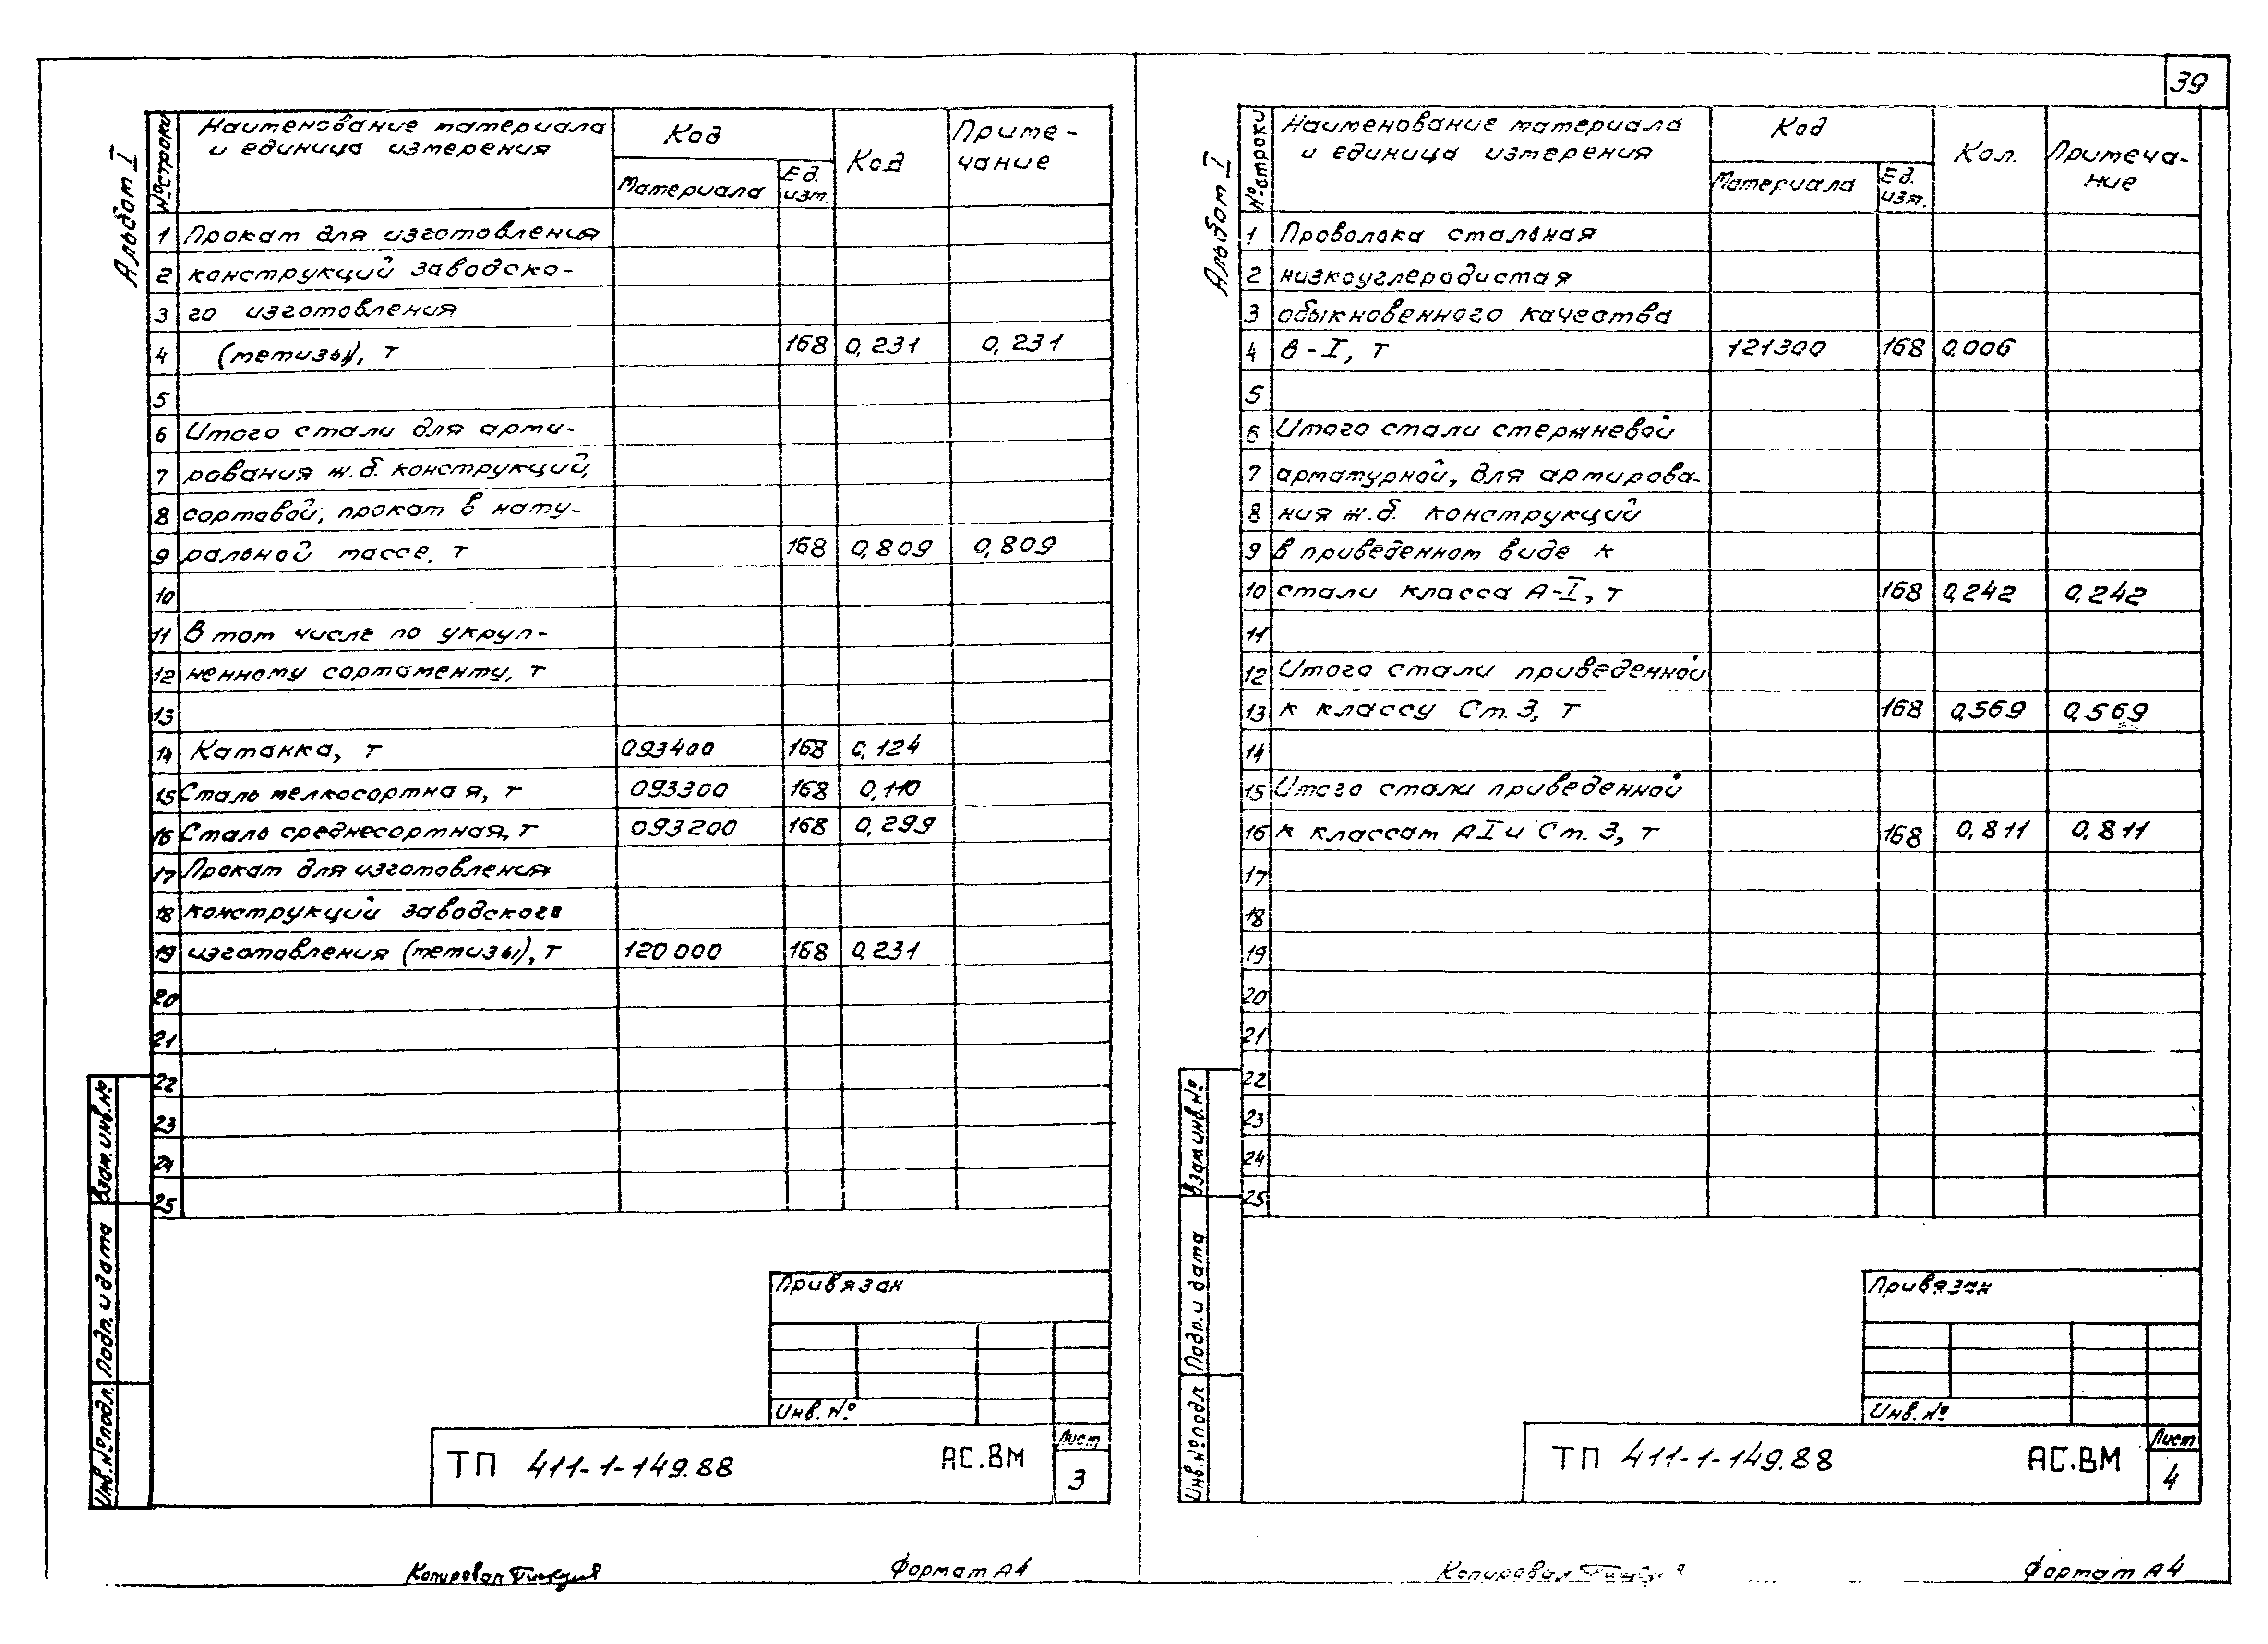 39
Альбом I
№ строки
Наименование материала
и единица измерения
Код
Материала
Ед.
изм.
Код
Приме-
чание
1 Прокат для изготовления
2 конструкций заводско-
3 го изготовления
4 (метизы), т 168 0,231 0,231
5
6 Итого стали для арми-
7 рования ж.б. конструкций,
8 сортовой, прокат в нату-
9 ральной массе, т 168 0,809 0,809
10
11 В том числе по укруп-
12 ненному сортаменту, т
13
14 Катанка, т 093400 168 0,124
15 Сталь мелкосортная, т 093300 168 0,110
16 Сталь среднесортная, т 093200 168 0,299
17 Прокат для изготовления
18 конструкций заводского
19 изготовления (метизы), т 120000 168 0,231
20
21
22
23
24
25
Взам. инв. №
Подп. и дата
Инв. № подл.
Привязан
Инв. №
ТП 411-1-149.88 АС.ВМ
Лист
3
Копировал
Формат А4
Альбом I
№ строки
Наименование материала
и единица измерения
Код
Материала
Ед.
изм.
Кол.
Примеча-
ние
1 Проволока стальная
2 низкоуглеродистая
3 обыкновенного качества
4 В-I, т 121300 168 0,006
5
6 Итого стали стержневой
7 арматурной, для армирова-
8 ния ж.б. конструкций
9 в приведенном виде к
10 стали класса А-I, т 168 0,242 0,242
11
12 Итого стали приведенной
13 к классу Ст.3, т 168 0,569 0,569
14
15 Итого стали приведенной
16 к классам АI и Ст.3, т 168 0,811 0,811
17
18
19
20
21
22
23
24
25
Взам. инв. №
Подп. и дата
Инв. № подл
Привязан
Инв. №
ТП 411-1-149.88 АС.ВМ
Лист
4
Копировал
Формат А4